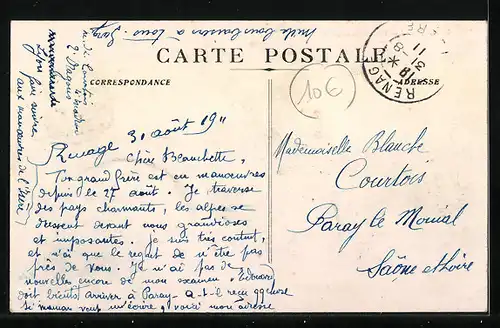 mille bons baisers à tous. Sang
CARTE POSTALE
CORRESPONDANCE
ADRESSE
RENAGE
18 *
31 - 8
11
10€
Mr de Courtois
2e Dragons
4e escadron
Lyon faire suivre
aux manœuvres de l'Isère
Renage 31 août 1911
Chère Blanchette,
Ton grand frère est en manœuvres
depuis le 27 août. Je traverse
des pays charmants, les alpes se
dressent devant nous grandioses
et imposantes. Je suis très content,
et n'ai que le regret de n'être pas
près de vous. Je n'ai pas de
nouvelles encore de mon examen.
doit bientôt arriver à Paray - a-t-il reçu
si maman veut m'écrire, voici mon adresse
Mademoiselle Blanche
Courtois
Paray le Monial
Saône et Loire